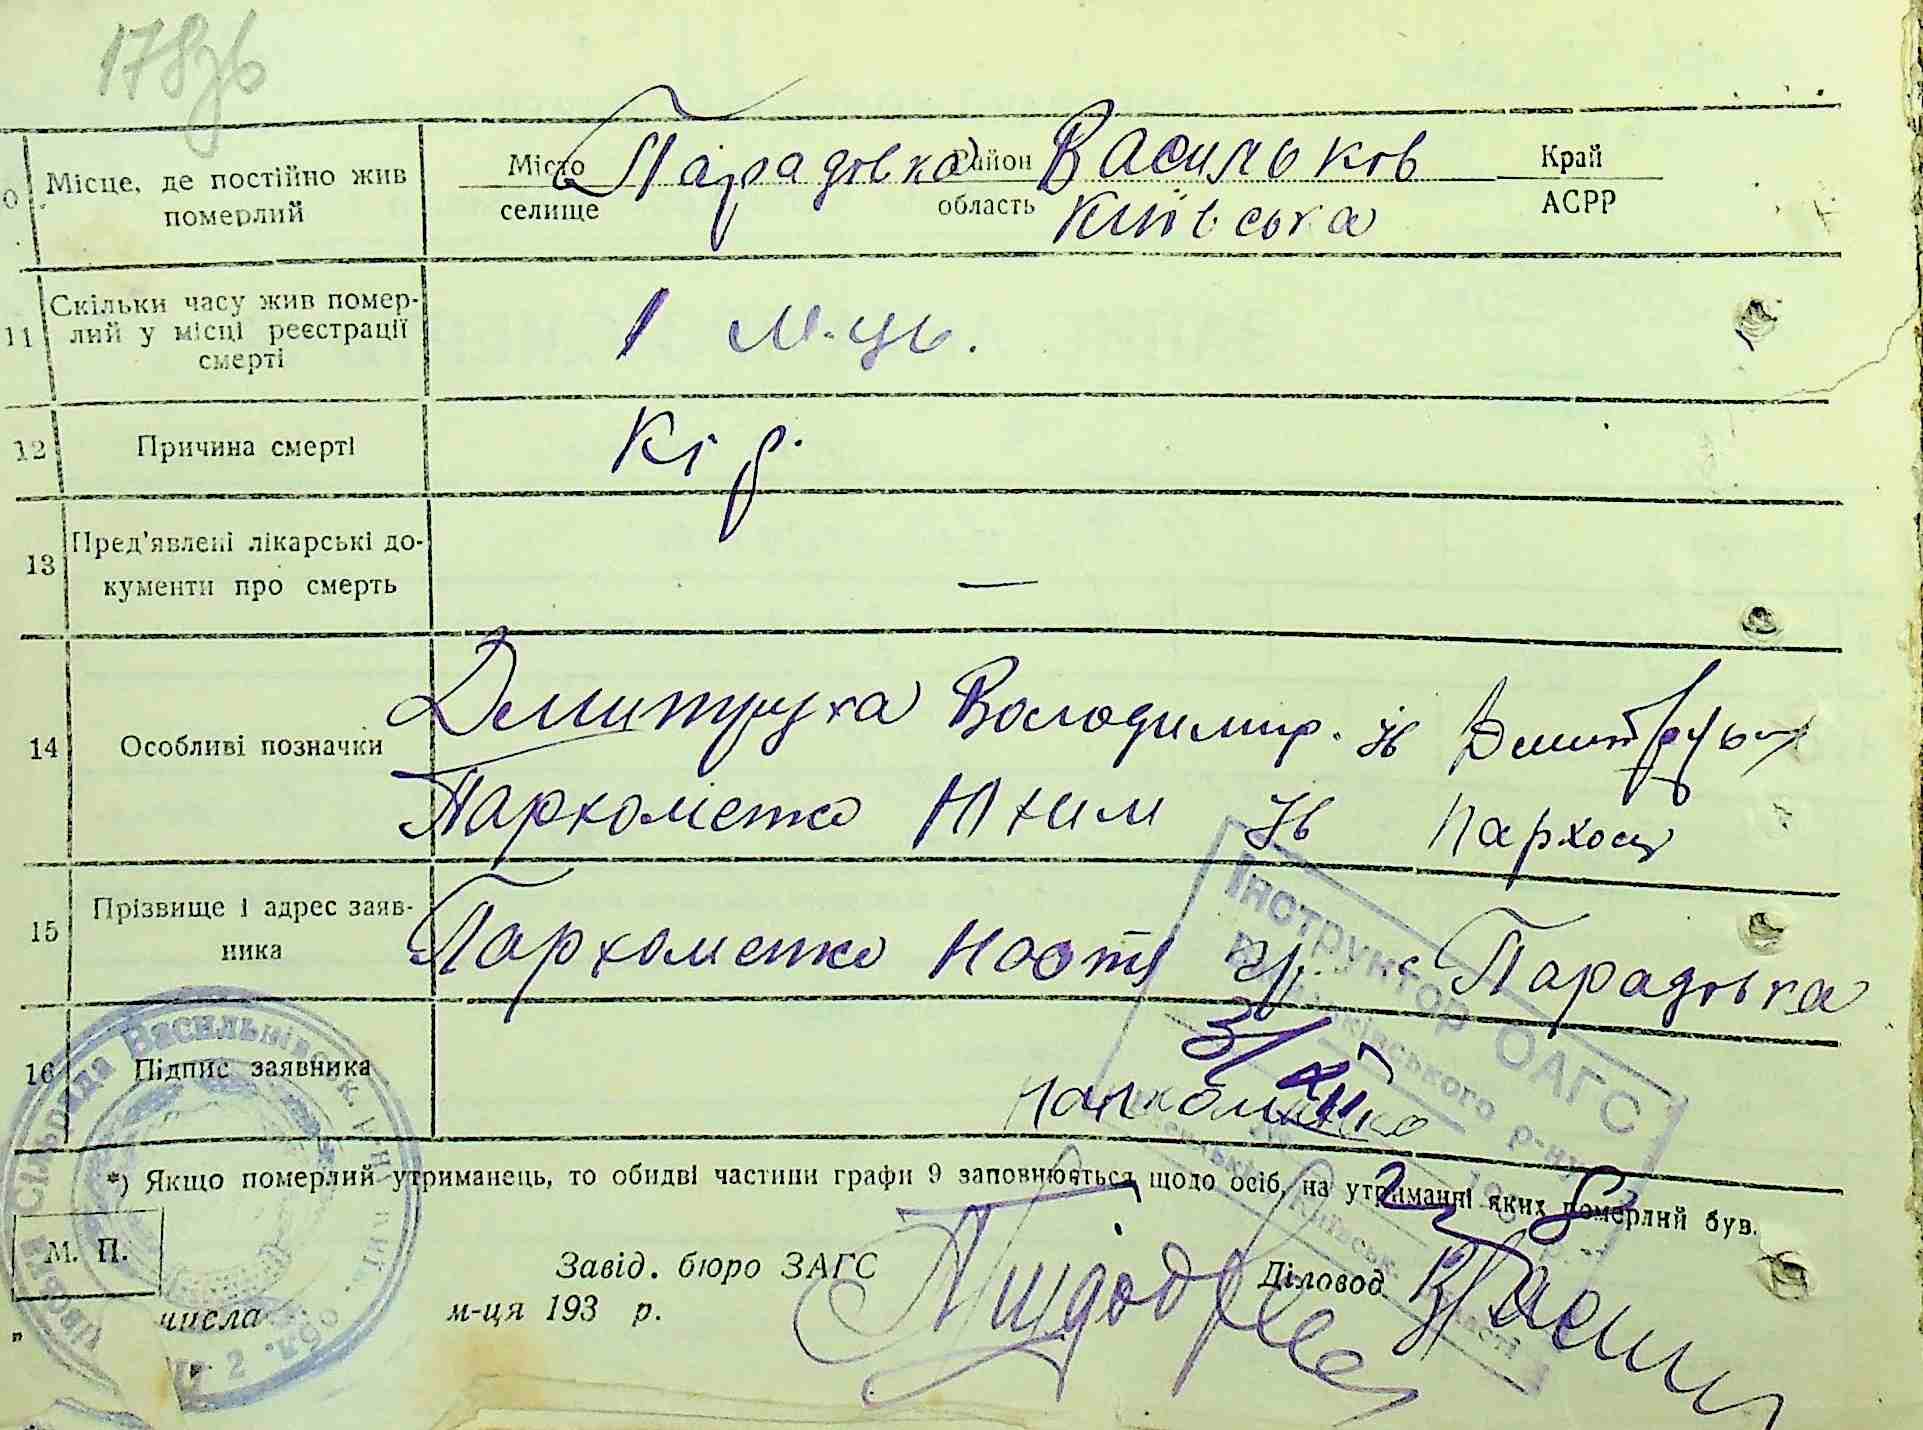 178зв
10 Місце, де постійно жив померлий
Місто селище Парадовка Район область Васильков Київська Край АСРР
11 Скільки часу жив помер-
лий у місці реєстрації
смерті
1 м-ць.
12 Причина смерті
Кір.
13 Пред'явлені лікарські до-
кументи про смерть
—
14 Особливі позначки
Дмитрука Володимир.
Пархоменко Юхим
15 Прізвище і адрес заяв-
ника
Пархоменко Настя с Парадовка
3/XII
16 Підпис заявника
Пархоменко
*) Якщо померлий утриманець, то обидві частини графи 9 заповнюється щодо осіб, на утриманні яких померлий був.
М. П.
Завід. бюро ЗАГС
Діловод
„ числа м-ця 193 р.
Інструктор ОАГС
р-ну